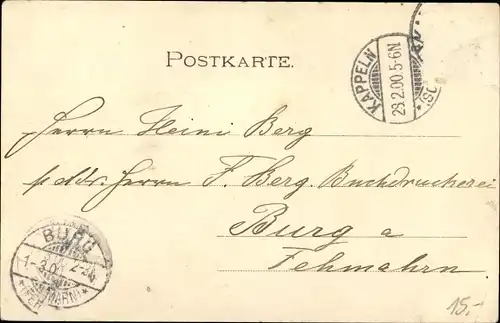 POSTKARTE.
KAPPELN
28.2.00.5-6N
*(SC
Herrn Heini Berg
p. Adr. Herrn F. Berg. Buchdruckerei
Burg a
Fehmahrn.
BURG
1-3.00
*(FEHMARN)*
15,-